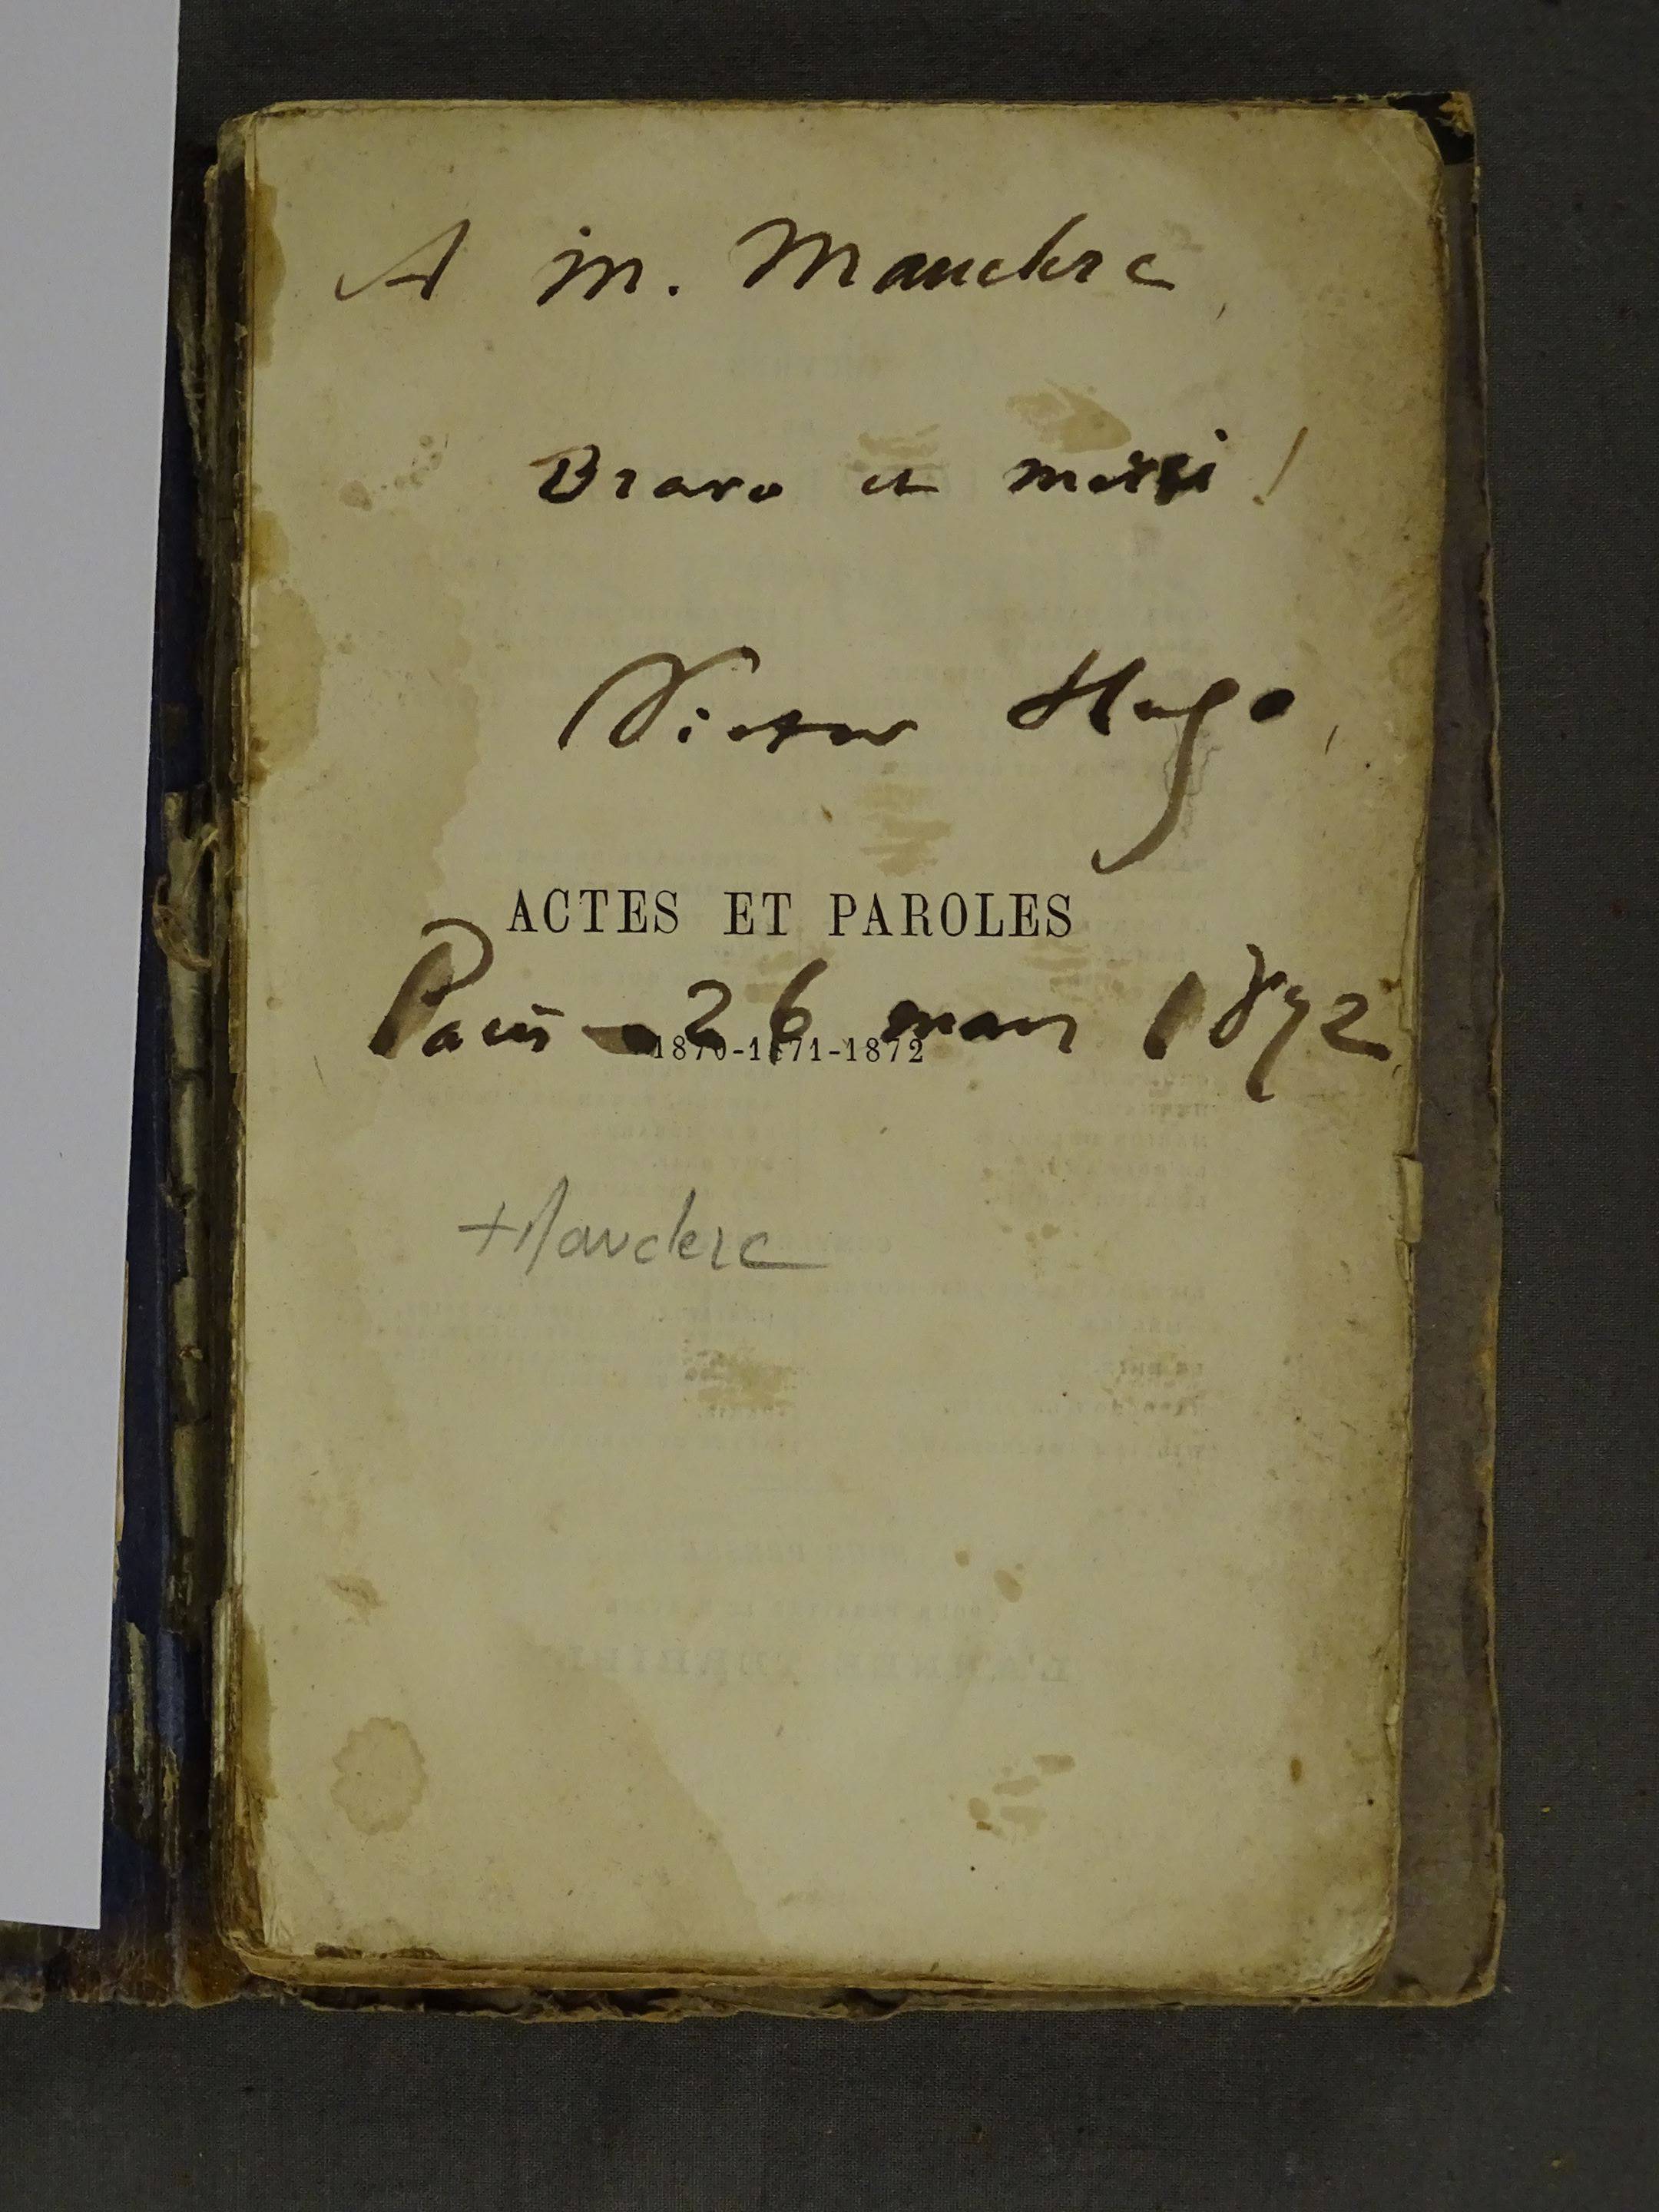 A M. Mauclerc
Bravo et merci !
Victor Hugo
ACTES ET PAROLES
Paris – 26 mars 1872
1870-1871-1872
Mauclerc